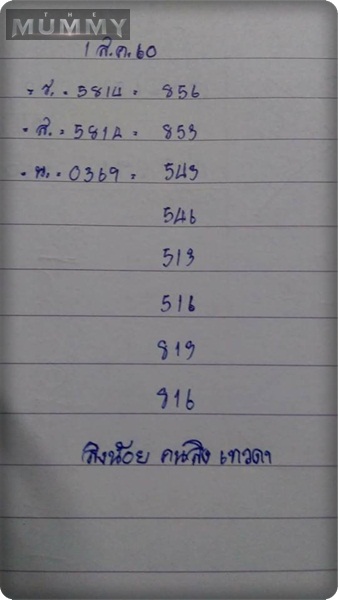 THE
MUMMY
1 ส.ค.60
- ร. - 5814 = 856
- ส. = 5814 = 853
- น. - 0369 = 543
546
513
516
813
816
สิงน้อย คนสิง เทวดา